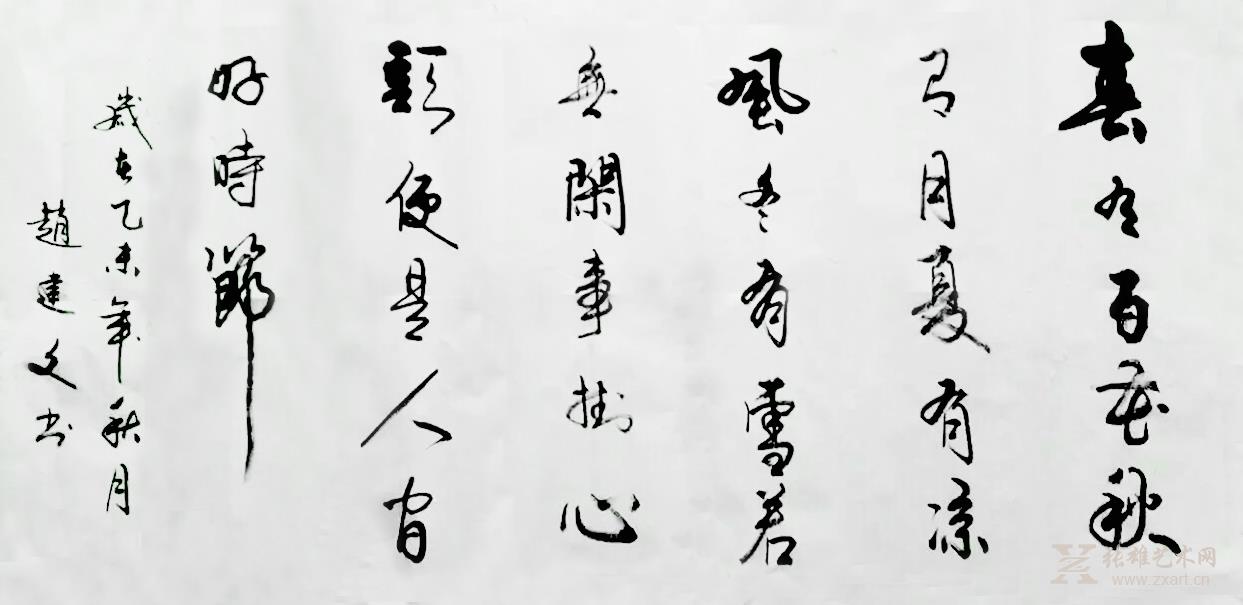 春有百花秋
有月夏有凉
風冬有雪若
無閑事掛心
頭便是人间
好時節
歲在乙未年秋月
趙建文书
张雄艺术网
www.zxart.cn